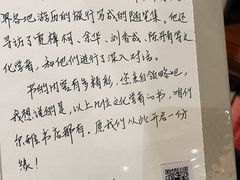 界各地游历的旅行写成的随笔集。他还
寻访了董桥、金华、刘香成、陈丹青等文
化学者，和他们进行了深入对话。
书的内容有多精彩，您来领略吧，
我想说的是，以上几位文化学者的书，咱们
书店都有，愿我们从此开启一份
缘！